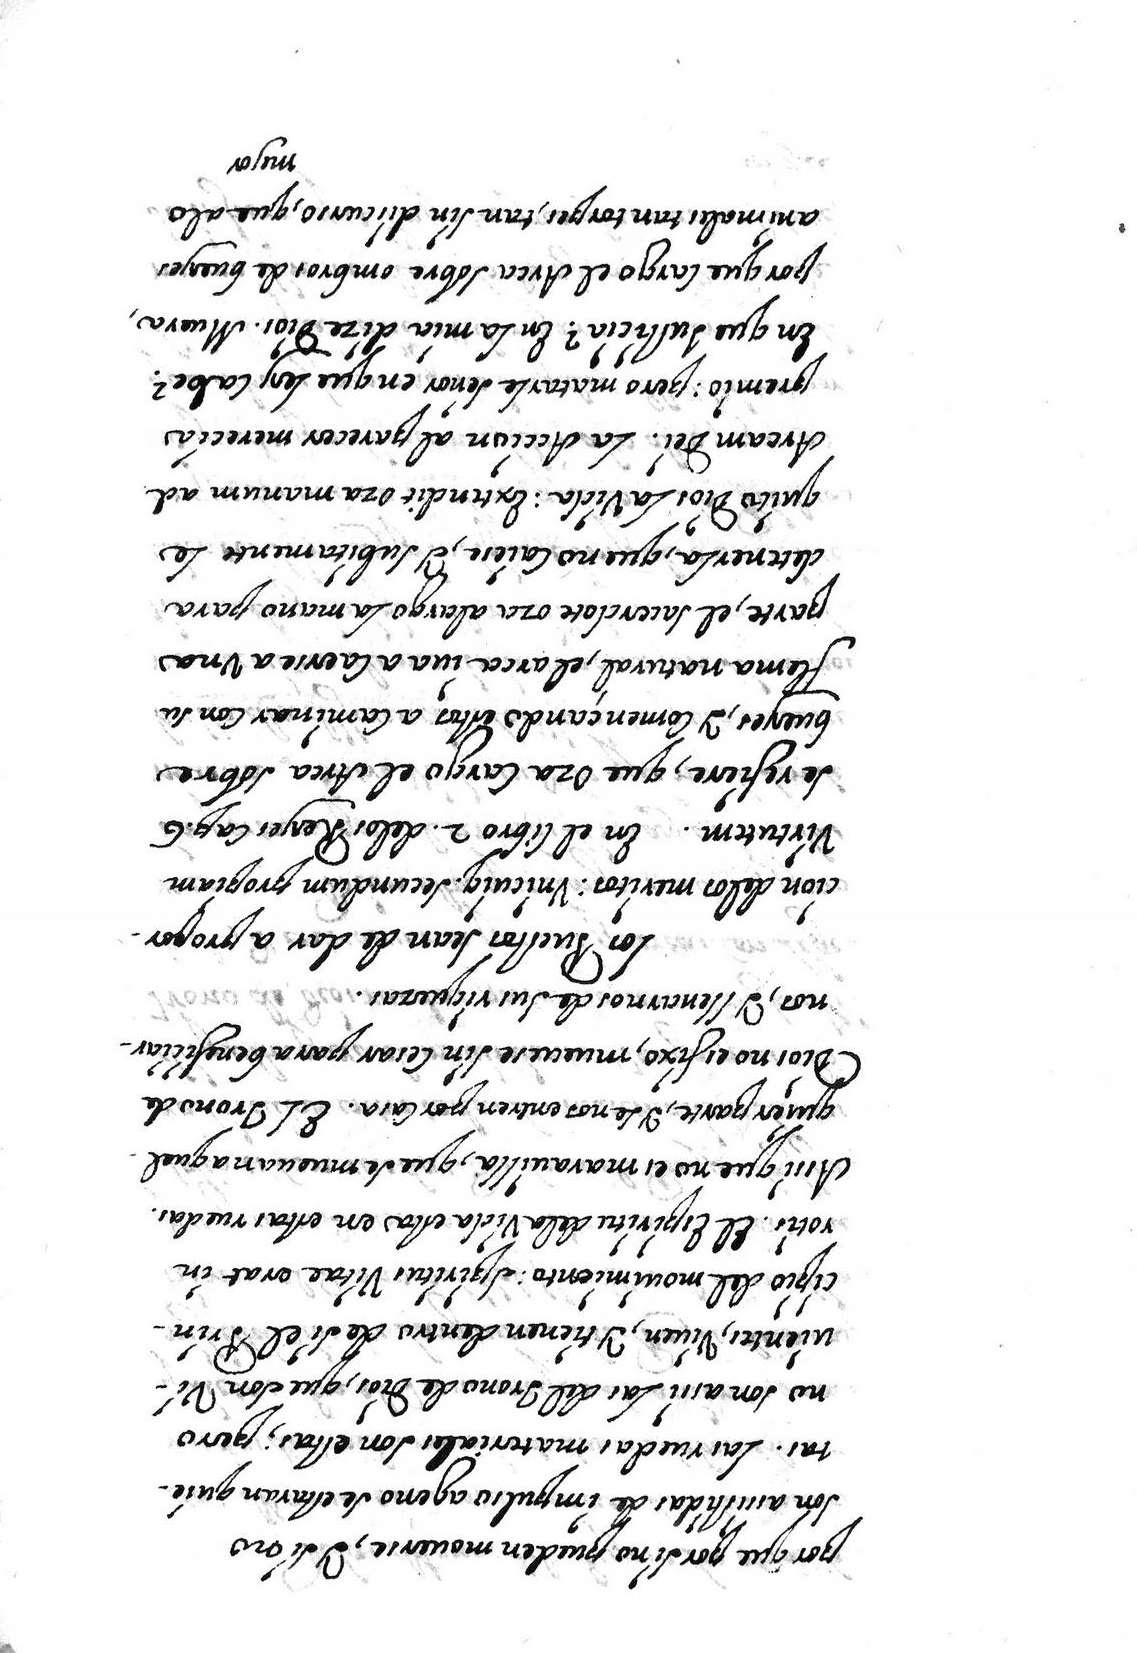 porque por si no pueden mouerse, Y si no
son assistidas de impulso ageno se estaran quie-
tas. Las ruedas materiales son estas; pero
no son assi las del Trono de Dios, que son Vi-
uientes, Viuen, Y tienen dentro de si el Prin-
cipio del mouimiento: Spiritus Vitae erat in
rotis. El Espiritu de la Vida estas en estas ruedas.
Assi que no es marauilla, que se mueuan a qual-
quier parte, Y se nos entren por casa. El Trono de
Dios no es fixo, mueuese sin cesar para beneficiar-
nos, Y llenarnos de sus riquezas.
Los Puestos sean de dar a propor-
cion de los meritos: Vnicuiq. secundum propiam
Virtutem. En el libro 2. de los Reyes Cap. 6
se refiere, que Oza Cargo el Arca sobre
bueyes, Y Començando estos a Caminar Con su
flema natural, el arca iua a Caerse a Vna
parte, el sacerdote oza alargo la mano para
detenerla, que no Caiese, Y subitamente le
quito Dios la Vida: Extendit oza manum ad
Arcam Dei. La Accion al parecer merecia
premio; pero matarle señor en que ley Cabe?
En que Justicia? En la mia dize Dios. Muera,
porque Cargo el Arca sobre ombros de bueyes
animales tan torpes, tan sin discurso, que a lo
mejor